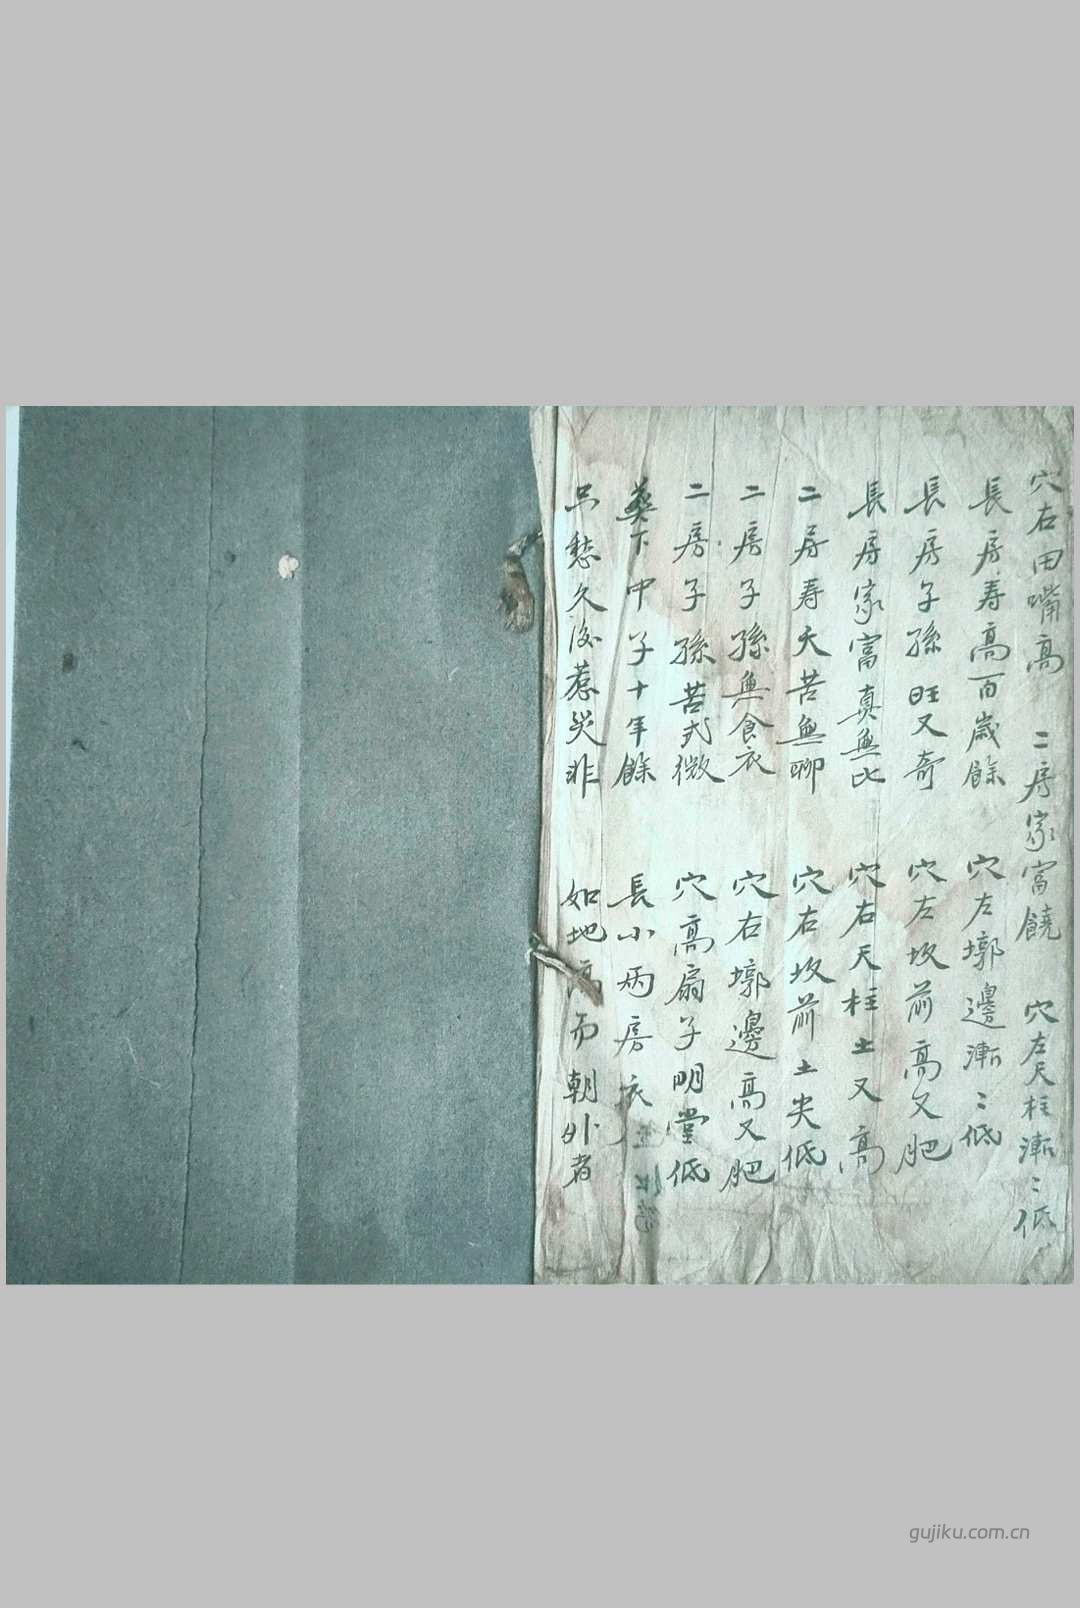 穴右田嘴高 二房家富饒 穴左天柱漸〻低
長房寿高百歳餘 穴左墎邊漸〻低
長房子孫旺又奇 穴左坟前高又肥
長房家富真無比 穴右天柱土又高
二房寿夭苦無聊 穴右坟前土尖低
二房子孫無食衣 穴右墎邊高又肥
二房子孫苦式微 穴高扇子明堂低
葬下中子十年餘 長小両房衣
只愁久後惹災非 如地高而朝外者
gujiku.com.cn